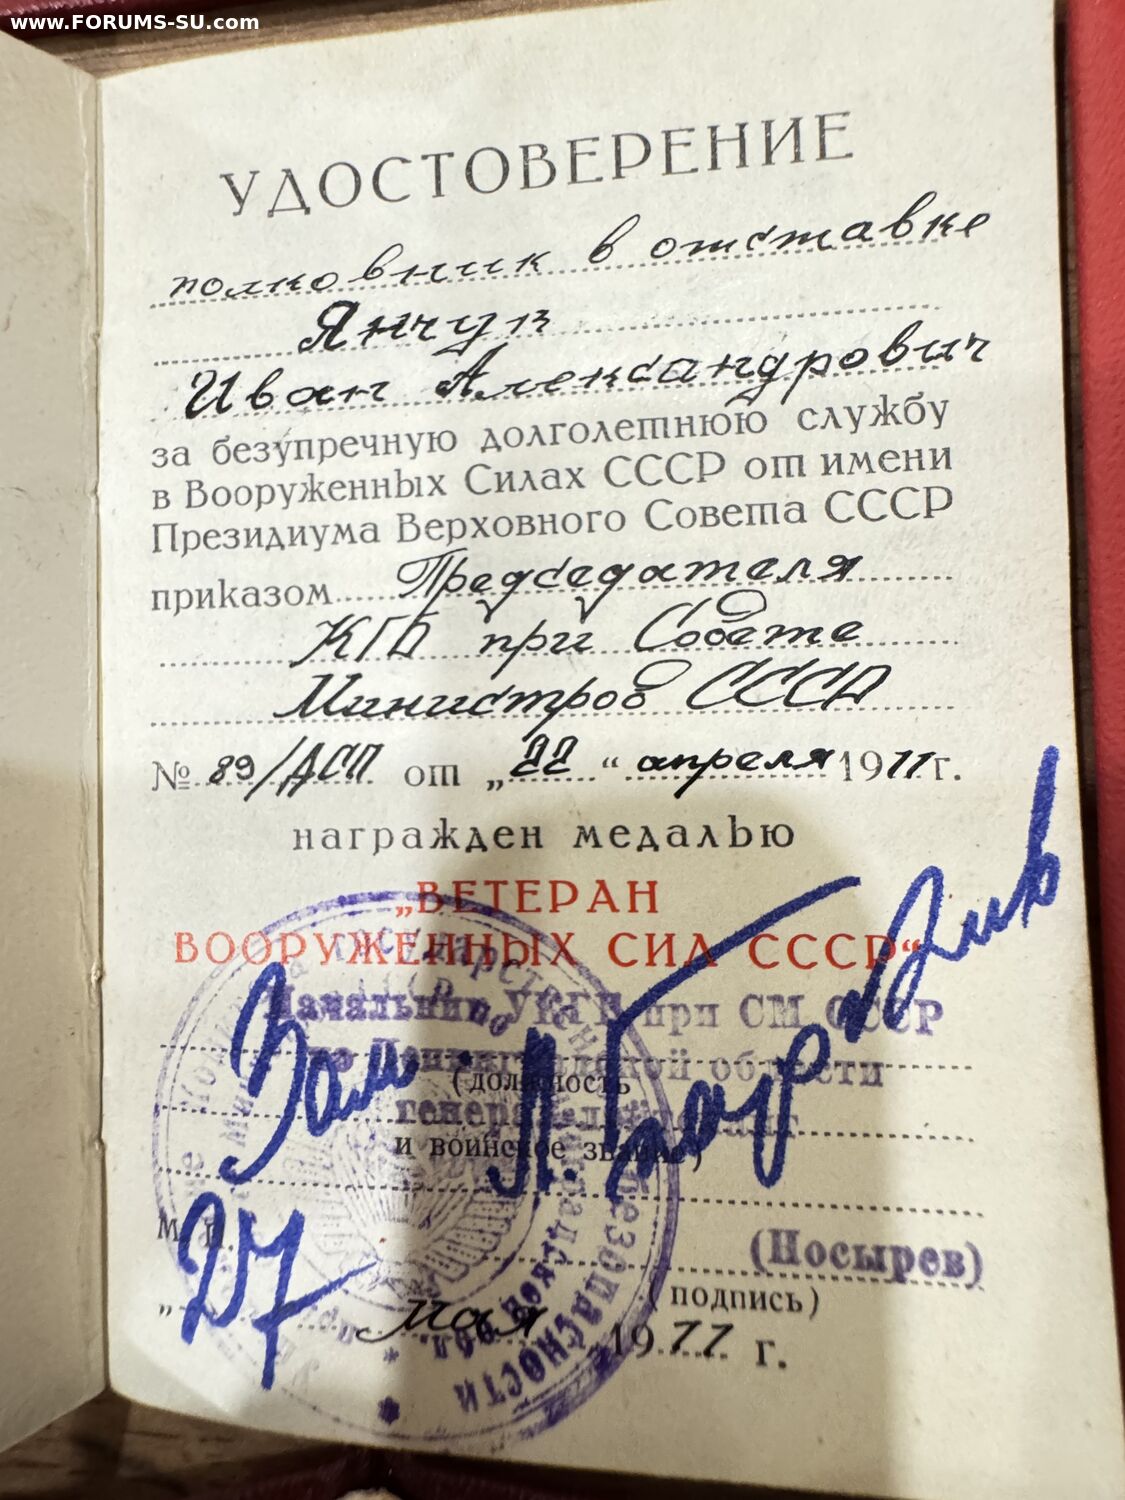 www.FORUMS-SU.com
УДОСТОВЕРЕНИЕ
полковник в отставке
Янчук
Иван Александрович
за безупречную долголетнюю службу
в Вооруженных Силах СССР от имени
Президиума Верховного Совета СССР
приказом Председателя
КГБ при Совете
Министров СССР
№ 89/ДСП от „22“ апреля 1977 г.
награжден медалью
„ВЕТЕРАН
ВООРУЖЕННЫХ СИЛ СССР“
Зам. Начальник УКГБ при СМ СССР
по Ленинградской области
(должность
генерал-лейтенант
и воинское звание)
М. П.
(Носырев)
(подпись)
„27 мая 1977 г.